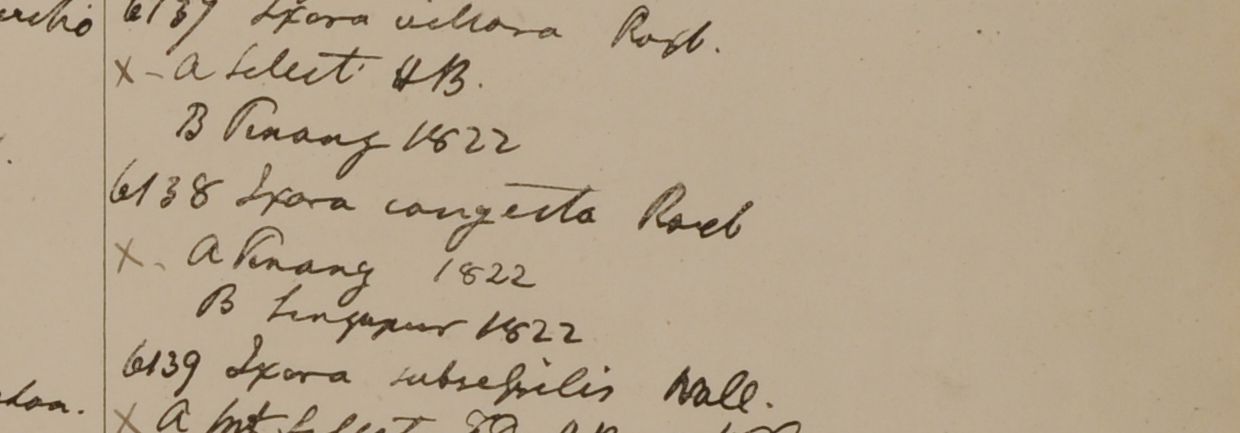 6137 Ixora villosa Roxb.
x - A Silect HB.
B Penang 1822
6138 Ixora congesta Roxb
x - A Penang 1822
B Singapur 1822
6139 Ixora subsessilis Wall.
x A Mt Silhet